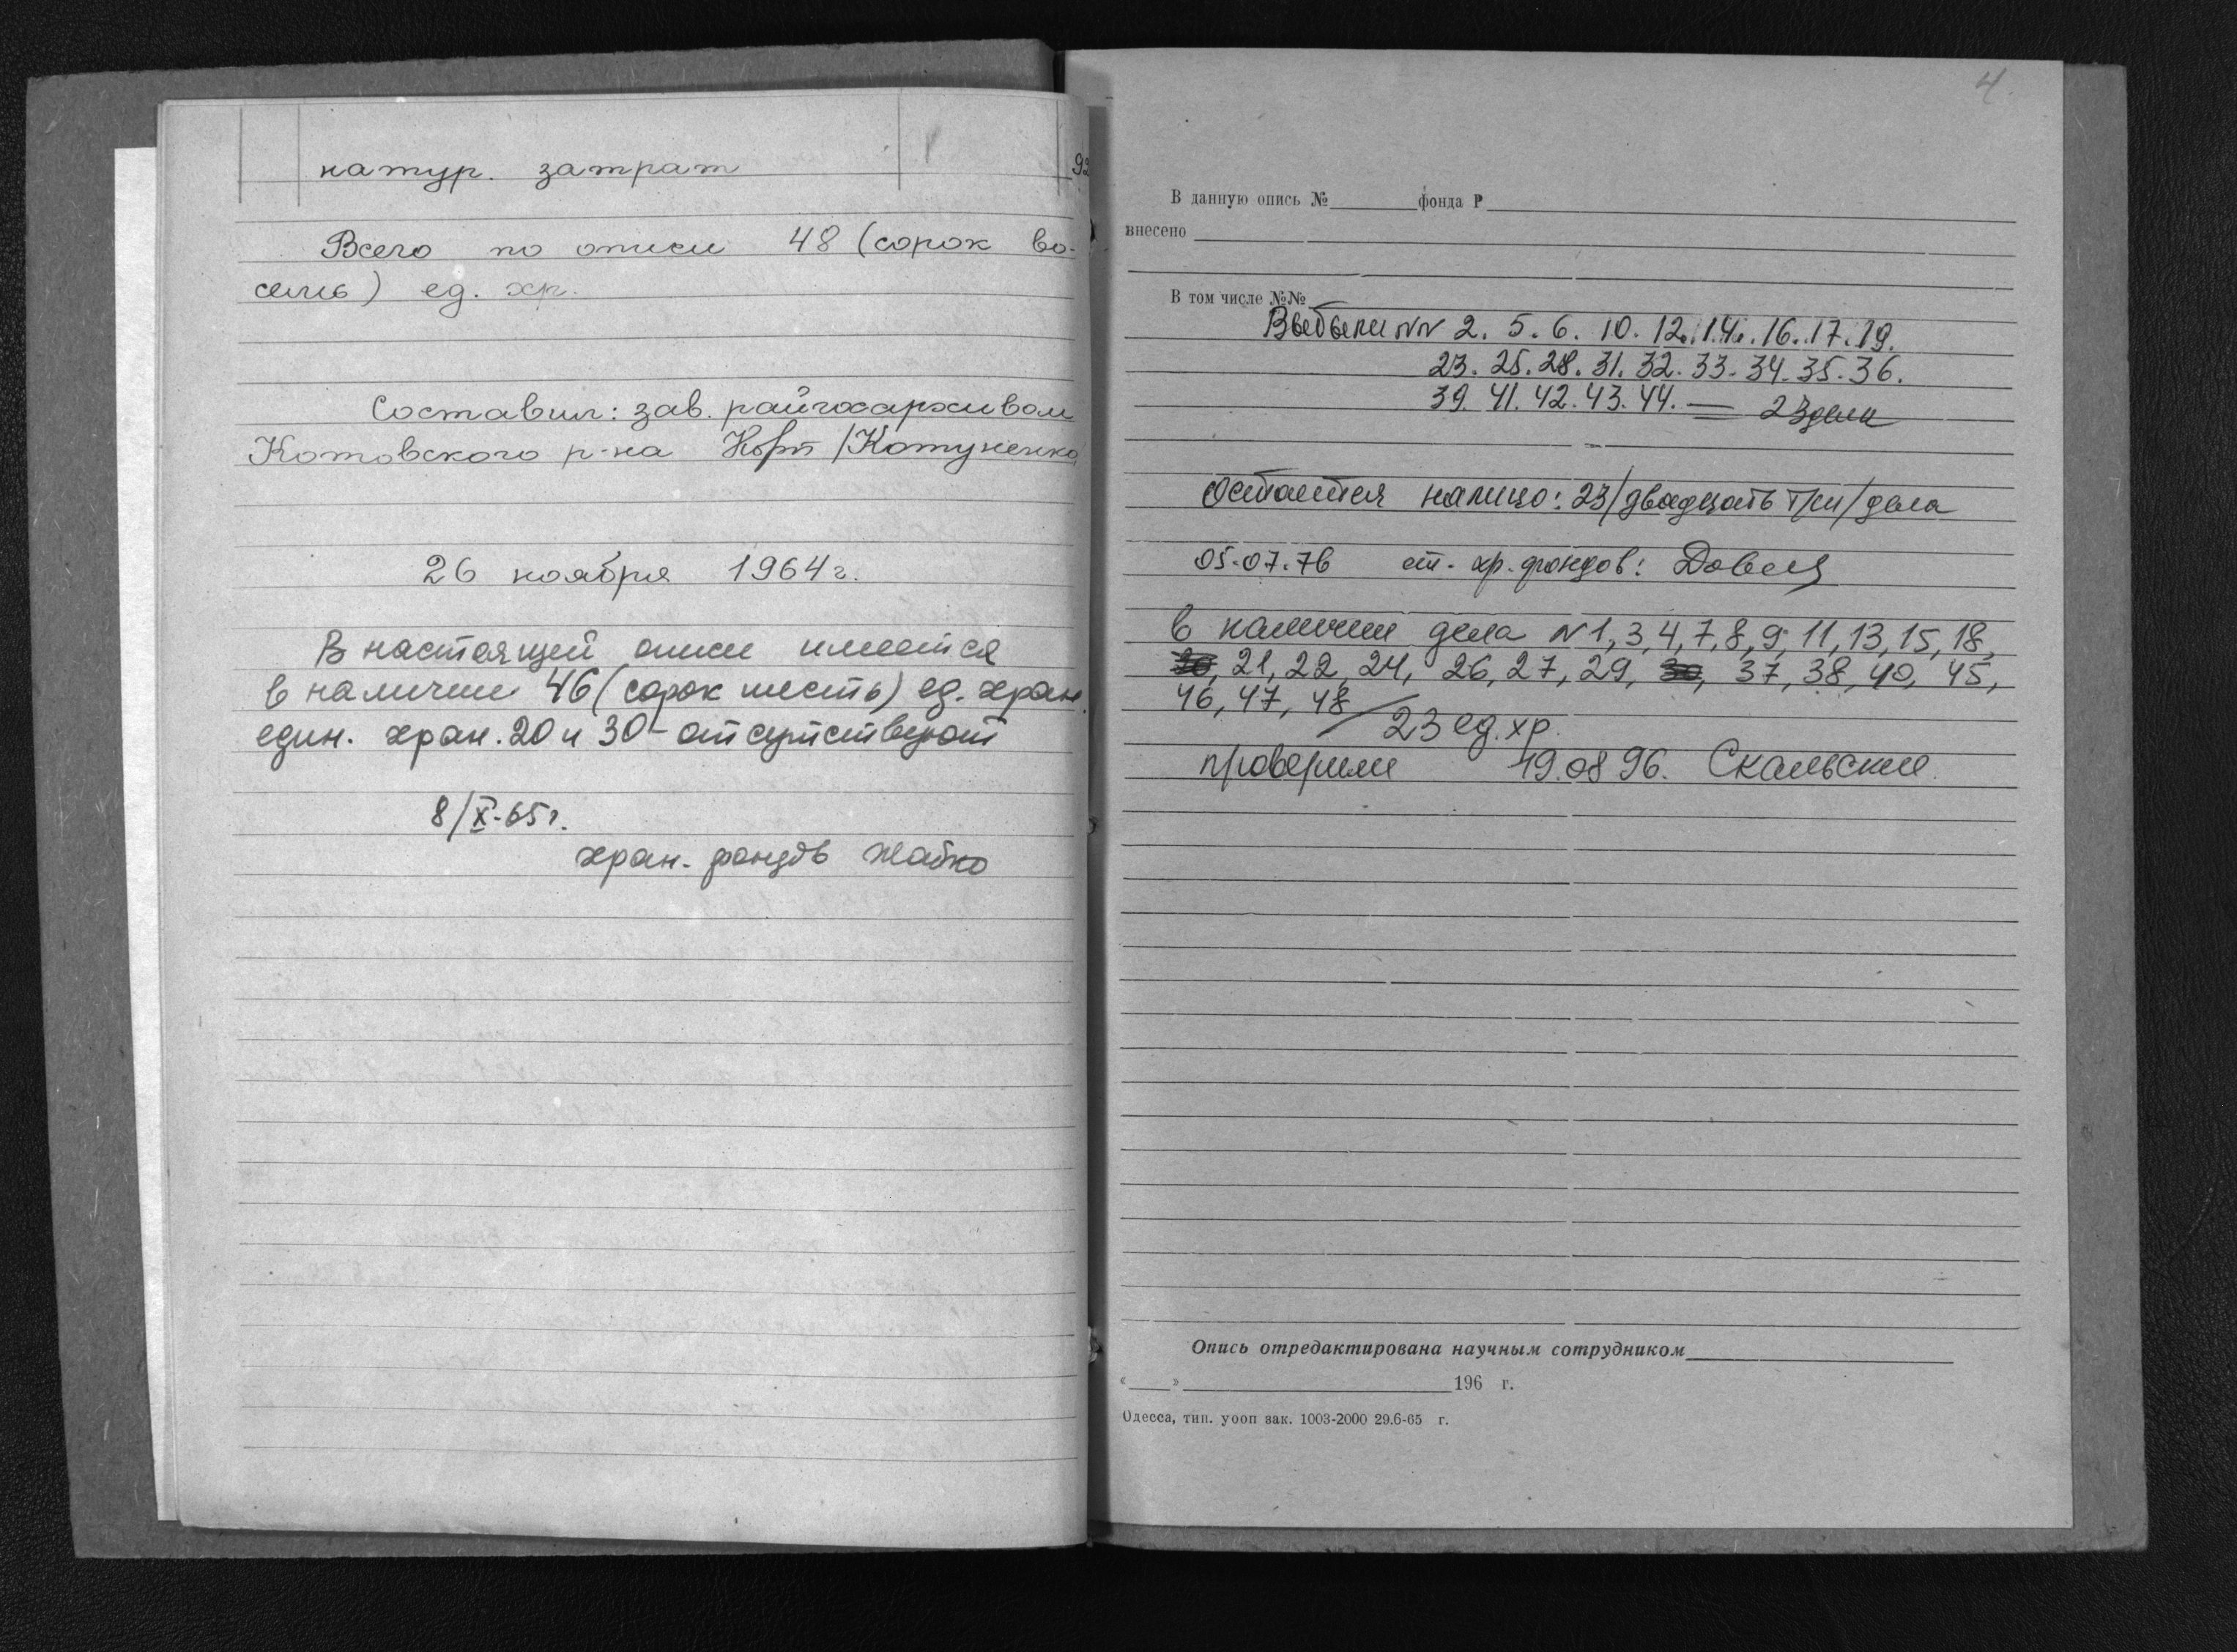 натур. затрат
92
Всего по описи 48 (сорок во-
семь) ед. хр.
Составил: зав. райгосархивом
Котовского р-на /Котуненко
26 ноября 1964 г.
В настоящей описи имеется
в наличии 46 (сорок шесть) ед. хран.
един. хран. 20 и 30 - отсутствуют
8/X-65 г.
хран. фондов
4
В данную опись № фонда Р
внесено
В том числе №№
Выбыли NN 2. 5. 6. 10. 12. 14. 16. 17. 19.
23. 25. 28. 31. 32. 33. 34. 35. 36.
39. 41. 42. 43. 44. — 23 дела
Остается налицо: 23 /двадцать три/ дела
05.07.76 ст. хр. фондов:
В наличии дела N 1, 3, 4, 7, 8, 9, 11, 13, 15, 18,
20, 21, 22, 24, 26, 27, 29, 30, 37, 38, 40, 45,
46, 47, 48 / 23 ед. хр.
проверили 19.08 96.
Опись отредактирована научным сотрудником
« » 196 г.
Одесса, тип. уооп зак. 1003-2000 29.6-65 г.